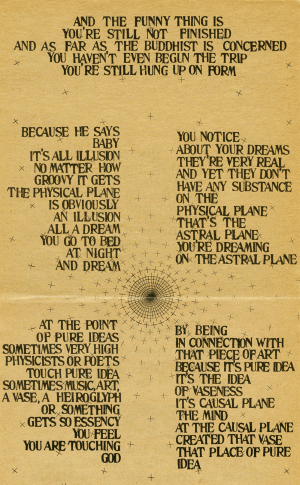 AND THE FUNNY THING IS
YOU'RE STILL NOT FINISHED
AND AS FAR AS THE BUDDHIST IS CONCERNED
YOU HAVEN'T EVEN BEGUN THE TRIP
YOU'RE STILL HUNG UP ON FORM
BECAUSE HE SAYS
BABY
IT'S ALL ILLUSION
NO MATTER HOW
GROOVY IT GETS
THE PHYSICAL PLANE
IS OBVIOUSLY
AN ILLUSION
ALL A DREAM
YOU GO TO BED
AT NIGHT
AND DREAM
YOU NOTICE
ABOUT YOUR DREAMS
THEY'RE VERY REAL
AND YET THEY DON'T
HAVE ANY SUBSTANCE
ON THE
PHYSICAL PLANE
THAT'S THE
ASTRAL PLANE
YOU'RE DREAMING
ON THE ASTRAL PLANE
AT THE POINT
OF PURE IDEAS
SOMETIMES VERY HIGH
PHYSICISTS OR POETS
TOUCH PURE IDEA
SOMETIMES MUSIC, ART,
A VASE, A HEIROGLYPH
OR SOMETHING
GETS SO ESSENCY
YOU FEEL
YOU ARE TOUCHING
GOD
BY BEING
IN CONNECTION WITH
THAT PIECE OF ART
BECAUSE IT'S PURE IDEA
IT'S THE IDEA
OF VASENESS
IT'S CAUSAL PLANE
THE MIND
AT THE CAUSAL PLANE
CREATED THAT VASE
THAT PLACE OF PURE
IDEA